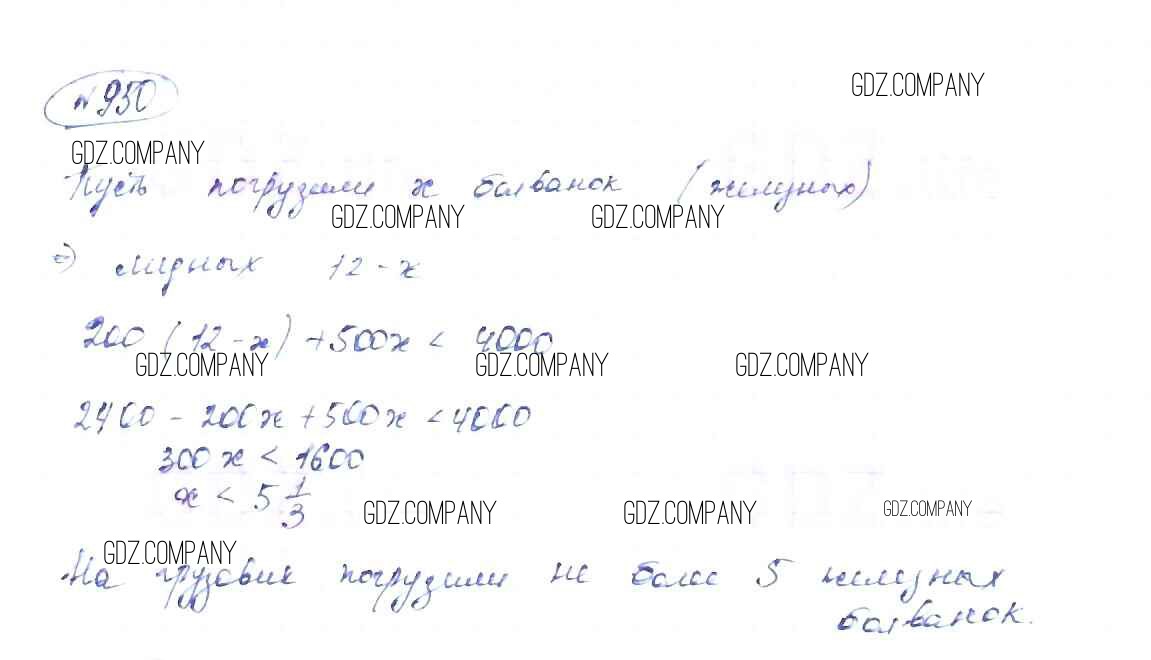 №950
GDZ.COMPANY
GDZ.COMPANY
Пусть погрузили x болванок (железных)
GDZ.COMPANY GDZ.COMPANY
=> медных 12-x
200(12-x)+500x < 4000
GDZ.COMPANY GDZ.COMPANY GDZ.COMPANY
2400-200x+500x<4000
300x < 1600
x < 5 1/3
GDZ.COMPANY GDZ.COMPANY GDZ.COMPANY
GDZ.COMPANY
На грузовик погрузили не более 5 железных
болванок.